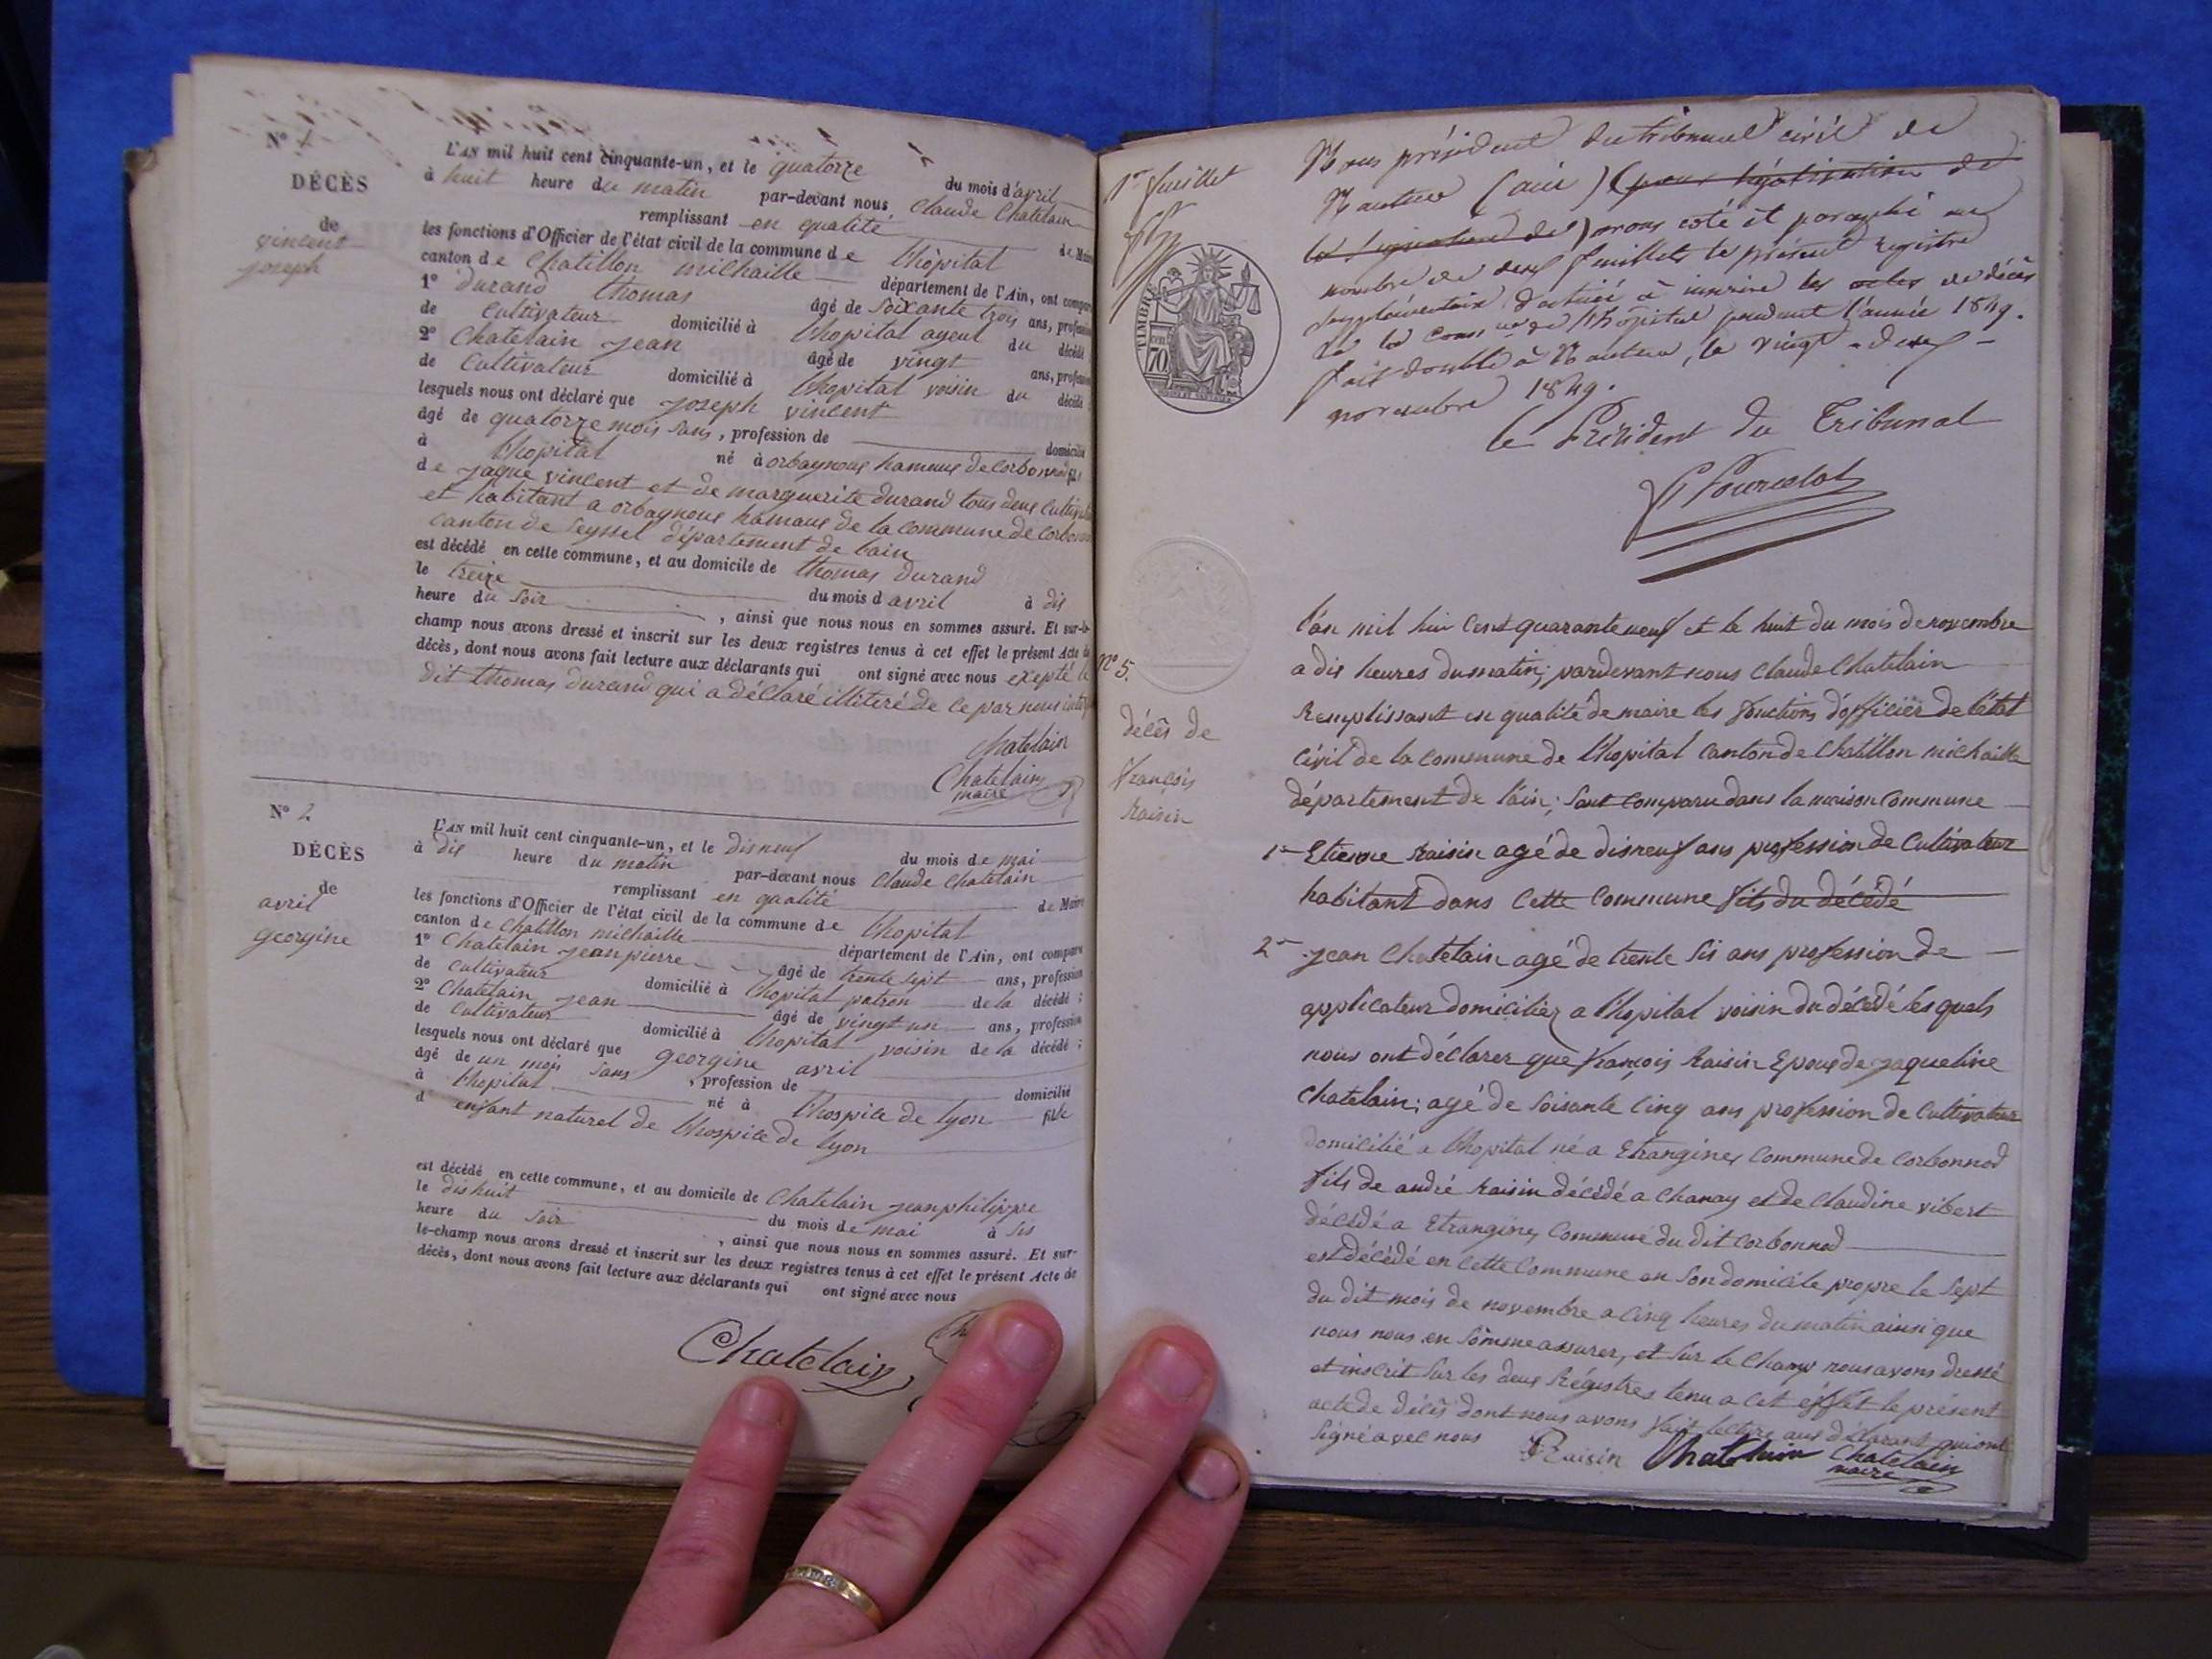 N° 1
DÉCÈS
de
vincent
joseph
L'AN mil huit cent cinquante-un, et le quatorze du mois d'avril
à huit heure du matin par-devant nous Claude Chatelain
remplissant en qualité de Maire
les fonctions d'Officier de l'état civil de la commune de L'hôpital
canton de Chatillon michaille département de l'Ain, ont comparu
1° Durand thomas âgé de Soixante trois ans, profession
de Cultivateur domicilié à Lhopital ayeul du décédé
2° Chatelain Jean âgé de vingt ans, profession
de Cultivateur domicilié à Lhopital voisin du décédé
lesquels nous ont déclaré que joseph vincent
âgé de quatorze mois sans, profession de domicilié
à Lhopital né à orbagnoux hameux de Corbonnod fils
de jaque vincent et de marguerite durand tous deux Cultiv
et habitant a orbagnoux hamaux de la Commune de Corbon
canton de Seyssel département de Lain
est décédé en cette commune, et au domicile de thomas Durand
le treize du mois d avril à dix
heure du Soir, ainsi que nous nous en sommes assuré. Et sur-le-
champ nous avons dressé et inscrit sur les deux registres tenus à cet effet le présent Acte de
décès, dont nous avons fait lecture aux déclarants qui ont signé avec nous exepté le
dit thomas Durand qui a déclaré illitéré de ce par nous
Chatelain
Chatelain
maire
N° 2
DÉCÈS
de
avril
georgine
L'AN mil huit cent cinquante-un, et le disneuf du mois de mai
à dix heure du matin par-devant nous Claude Chatelain
remplissant en qualité de Maire
les fonctions d'Officier de l'état civil de la commune de Lhopital
canton de Chatillon michaille département de l'Ain, ont comparu
1° Chatelain jean pierre âgé de trente Sept ans, profession
de Cultivateur domicilié à Lhopital patron de la décédé ;
2° Chatelain jean âgé de vingt un ans, profession
de Cultivateur domicilié à Lhopital voisin de la décédé ;
lesquels nous ont déclaré que georgine avril
âgé de un mois sans, profession de domicilié
à Lhopital né à L'hospice de lyon fille
d enfant naturel de Lhospice de lyon
est décédé en cette commune, et au domicile de Chatelain jean philippe
le dishuit du mois de mai à Six
heure du Soir, ainsi que nous nous en sommes assuré. Et sur-
le-champ nous avons dressé et inscrit sur les deux registres tenus à cet effet le présent Acte de
décès, dont nous avons fait lecture aux déclarants qui ont signé avec nous
Chatelain
1er feuillet
TIMBRE
70
Nous président du tribunal civil de
Nantua (ain) (pour légalisation de
la signature de) avons coté et paraphé au
nombre de deux feuillets le présent registre
supplémentaire destiné à inscrire les actes de décès
de la commune de l'hôpital pendant l'année 1849.
fait double à Nantua, le vingt-deux
novembre 1849.
le Président du Tribunal
N° 5.
Décès de
françois
Raisin
L'an mil huit Cent quarante neuf et le huit du mois de novembre
a dix heures du matin; pardevant nous Claude Chatelain
Remplissant en qualité de maire les fonctions d'officier de l'état
Civil de la Commune de Lhopital Canton de Chatillon michaille
département de l'ain; Sont Comparu dans la maison Commune
1° Etienne Raisin agé de disneuf ans profession de Cultivateur
habitant dans Cette Commune fils du décédé
2° jean Chatelain agé de trente Six ans profession de
applicateur domiciliez a Lhopital voisin du décédé lesquels
nous ont déclarer que françois Raisin Epoux de jaqueline
Chatelain; agé de Soisante Cinq ans profession de Cultivateur
domicilié a Lhopital né a Etrangines Commune de Corbonnod
fils de andré Raisin décédé a Chanay et de Claudine vibert
décédé a Etrangines Commune du dit Corbonnod
est décédé en Cette Commune en Son domicile propre le Sept
du dit mois de novembre a Cinq heures du matin ainsi que
nous nous en Sômme assurer, et Sur le Champ nous avons dressé
et inscrit Sur les deux Régistres tenu a Cet éffet le présent
acte de décês dont nous avons fait lecture aux déclarant qui ont
Signé avec nous Raisin Chatelain Chatelain
maire